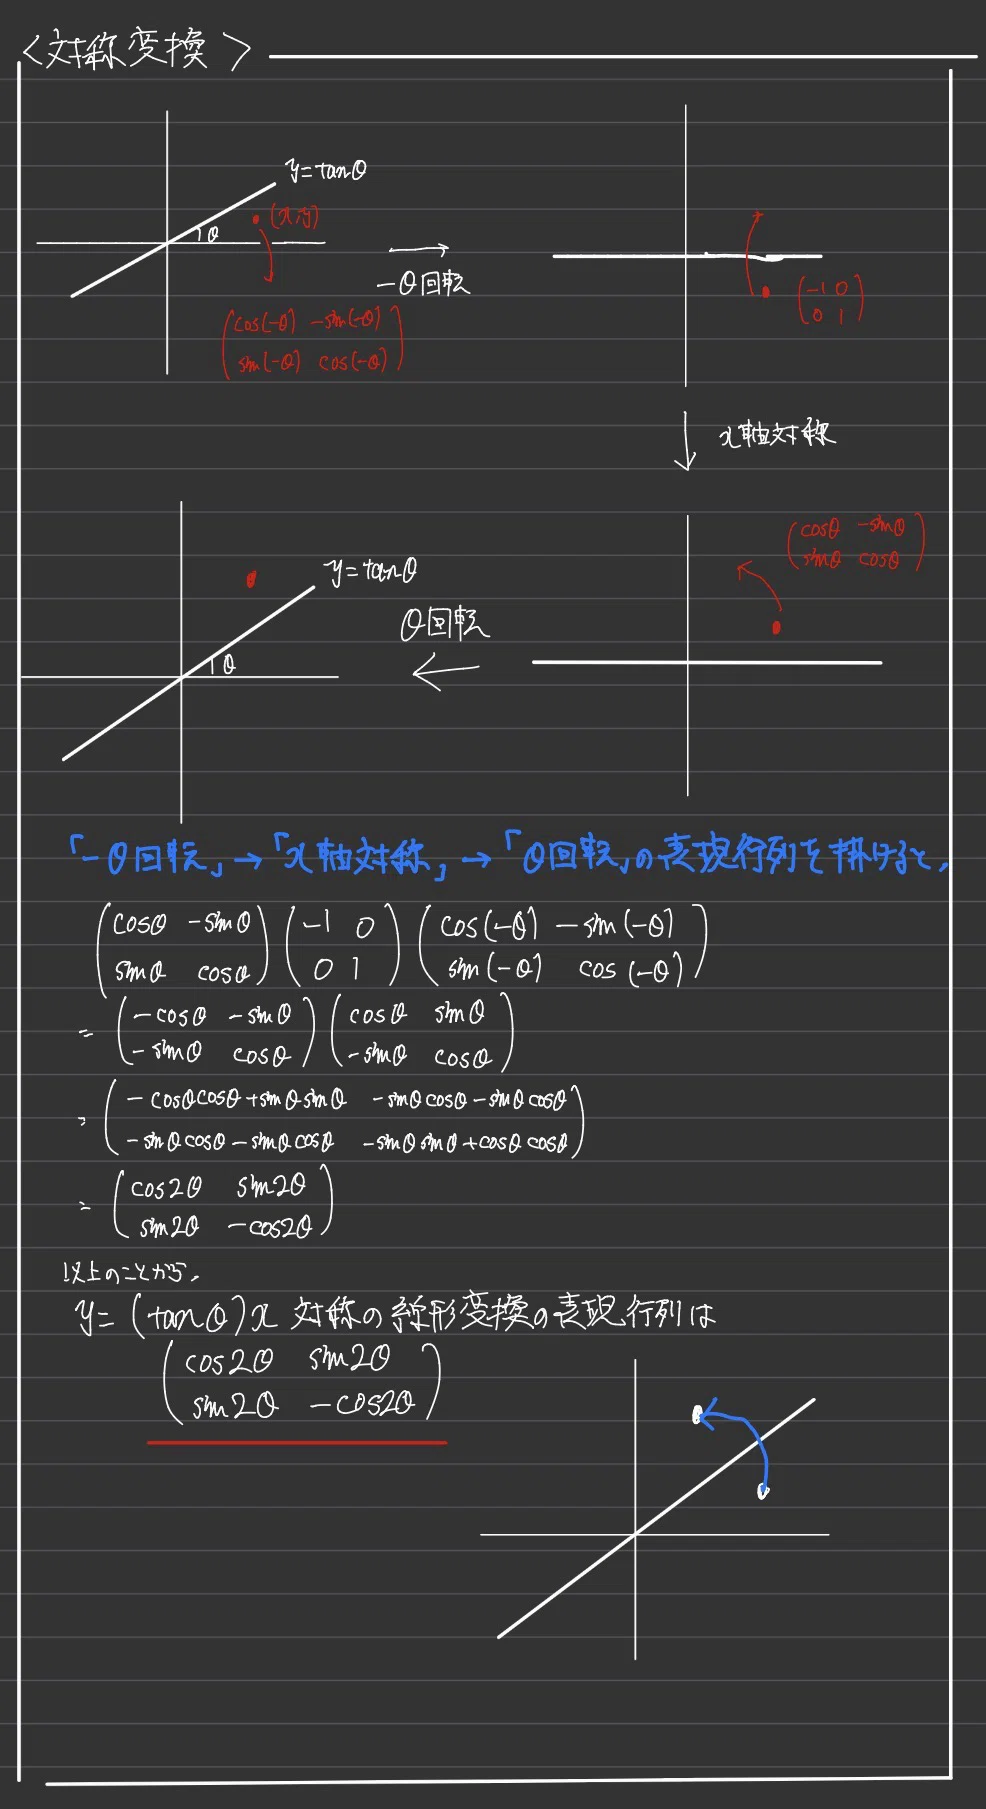 <対称変換>
y=tanθ
(x,y)
θ
-θ回転
(cos(-θ) -sin(-θ)
sin(-θ) cos(-θ))
(-1 0
0 1)
x軸対称
(cosθ -sinθ
sinθ cosθ)
y=tanθ
θ
θ回転
「-θ回転」→「x軸対称」→「θ回転」の表現行列を掛けると,
(cosθ -sinθ (-1 0 (cos(-θ) -sin(-θ)
sinθ cosθ) 0 1) sin(-θ) cos(-θ))
= (-cosθ -sinθ (cosθ sinθ
-sinθ cosθ) -sinθ cosθ)
= (-cosθcosθ+sinθsinθ -sinθcosθ-sinθcosθ
-sinθcosθ-sinθcosθ -sinθsinθ+cosθcosθ)
= (cos2θ sin2θ
sin2θ -cos2θ)
以上のことから,
y=(tanθ)x 対称の線形変換の表現行列は
(cos2θ sin2θ
sin2θ -cos2θ)